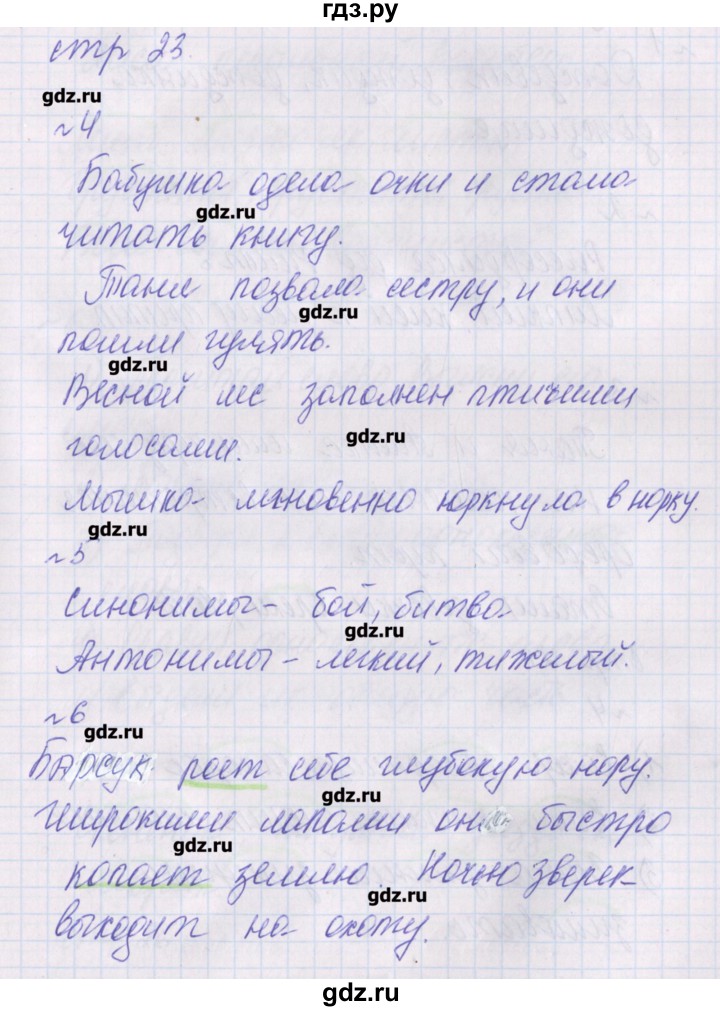 гдз.ру
стр 23.
gdz.ru
№4
Бабушка одела очки и стала
gdz.ru
читать книгу.
Таня позвала сестру, и они
gdz.ru
пошли гулять.
gdz.ru
Весной лес заполнен птичими
gdz.ru
голосами.
Мышка мгновенно юркнула в норку.
gdz.ru
№5
Синонимы - бой, битва
gdz.ru
Антонимы - легкий, тяжелый.
№6
gdz.ru
Барсук роет себе глубокую нору.
gdz.ru
Широкими лапами он быстро
gdz.ru
копает землю. Ночью зверек
gdz.ru
выходит на охоту.
gdz.ru